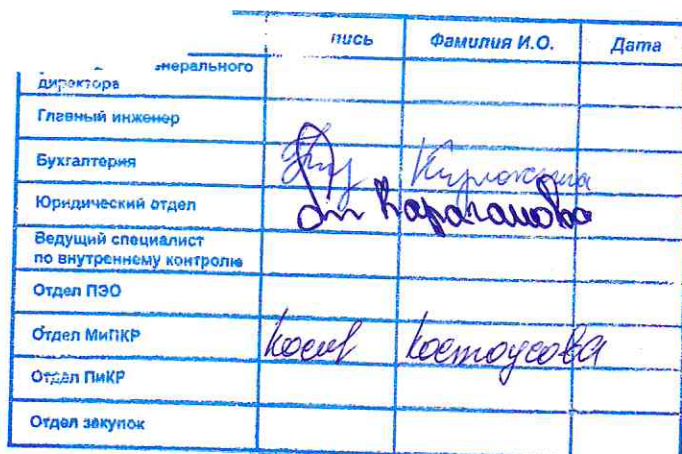 пись Фамилия И.О. Дата
нерального
директора
Главный инженер
Бухгалтерия
Юридический отдел Карагамова
Ведущий специалист
по внутреннему контролю
Отдел ПЭО
Отдел МиПКР Костоусова
Отдел ПиКР
Отдел закупок